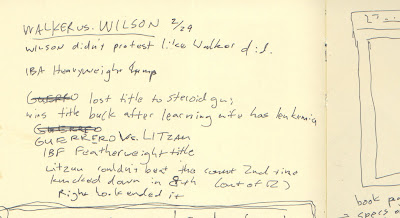 WALKER VS. WILSON 2/29
WILSON didn't protest like Walker did.
IBA Heavyweight champ
GUERRERO lost title to steroid guy
wins title back after learning wife has leukemia
GUERRERO VS. LITZAU
IBF Featherweight title
Litzau couldn't beat the count 2nd time
knocked down in 8th (out of 12)
Right hook ended it
book
specs